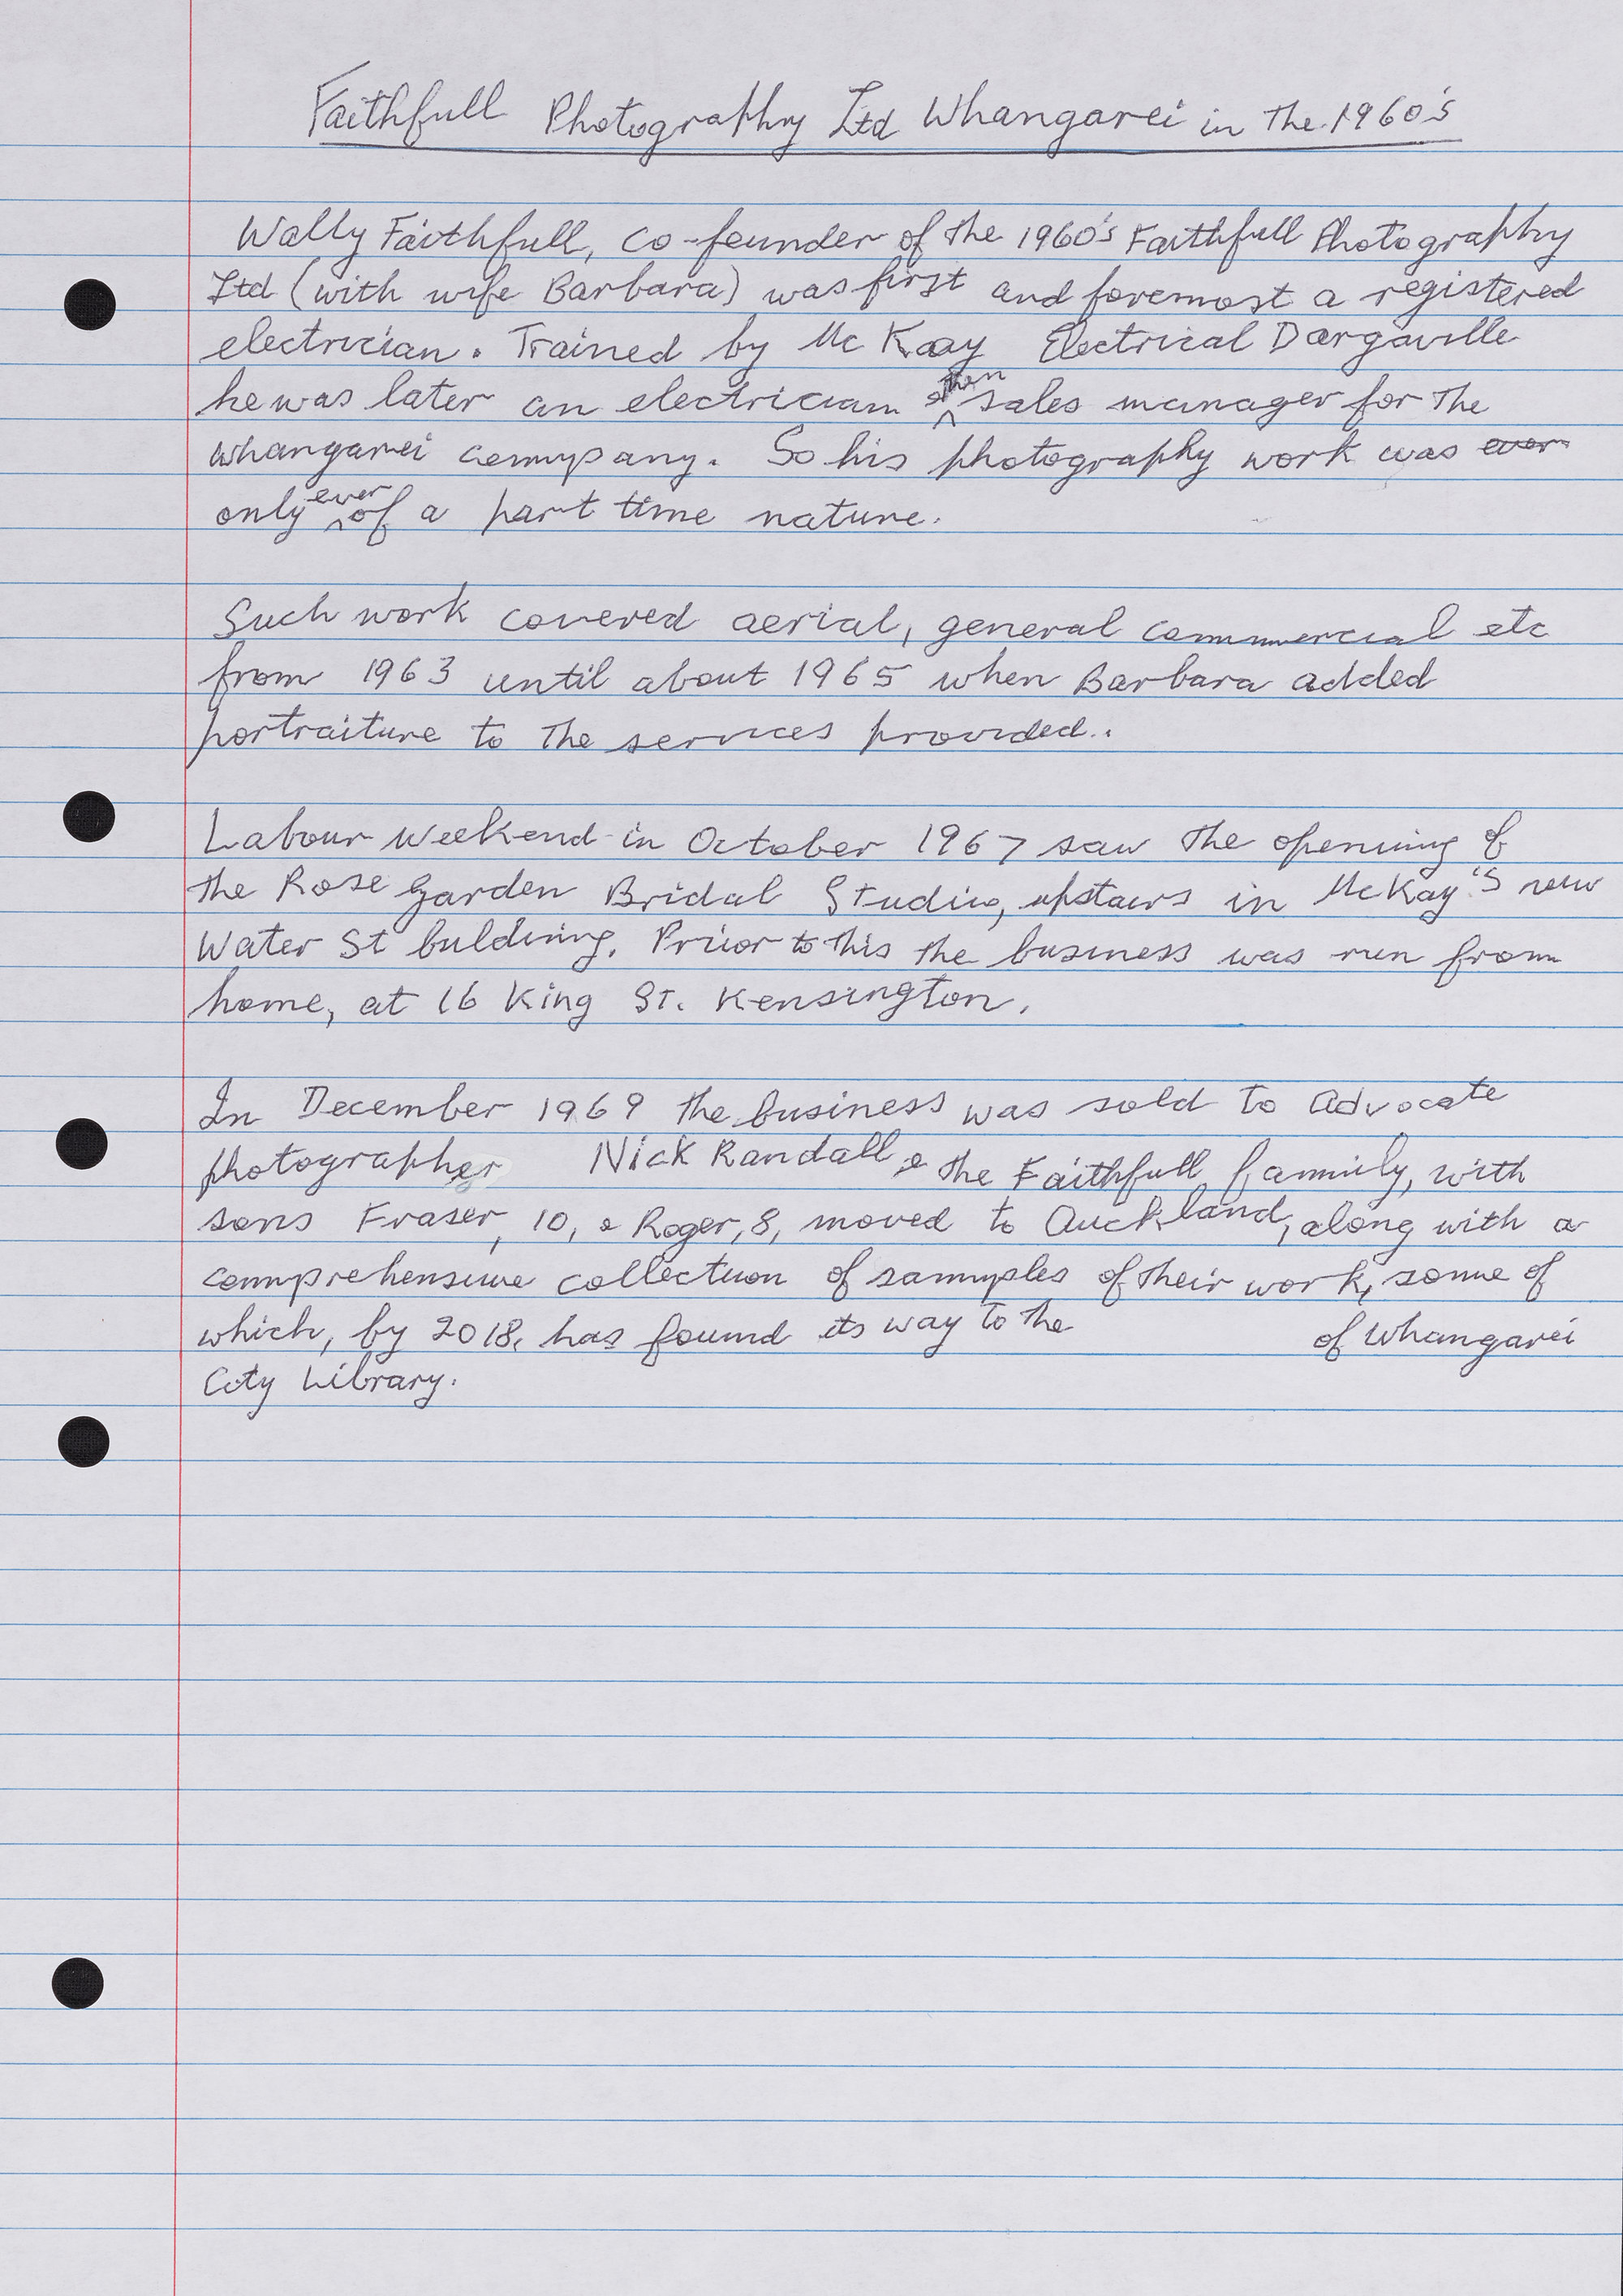 Faithfull Photography Ltd Whangarei in The 1960's
Wally Faithfull, co-founder of the 1960's Faithfull Photography
Ltd (with wife Barbara) was first and foremost a registered
electrician. Trained by Mc Kay Electrical Dargaville
he was later an electrician & then sales manager for the
Whangarei company. So his photography work was ever
only ever of a part time nature.
Such work covered aerial, general commercial etc
from 1963 until about 1965 when Barbara added
portraiture to the services provided..
Labour Weekend in October 1967 saw the opening of
the Rose Garden Bridal Studio, upstairs in McKay's new
Water St building. Prior to this the business was run from
home, at 16 King St. Kensington.
In December 1969 the business was sold to Advocate
photographer Nick Randall & the Faithfull family, with
sons Fraser, 10, & Roger, 8, moved to Auckland, along with a
comprehensive collection of samples of their work, some of
which, by 2018, has found its way to the of Whangarei
City Library.